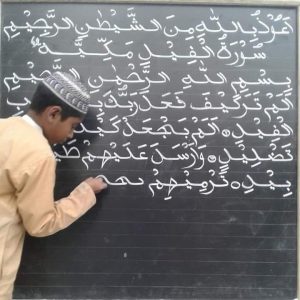 اَعُوْذُ بِاللّٰهِ مِنَ الشَّيْطٰنِ الرَّجِيْمِ
سُوْرَةُ الْفِيْلِ مَكِّيَّةٌ
بِسْمِ اللّٰهِ الرَّحْمٰنِ الرَّحِيْمِ
اَلَمْ تَرَكَيْفَ فَعَلَ رَبُّكَ
الْفِيْلِ اَلَمْ يَجْعَلْ
تَضْلِيْلٍ وَاَرْسَلَ عَلَيْهِمْ
بِيْلَ تَرْمِيْهِمْ